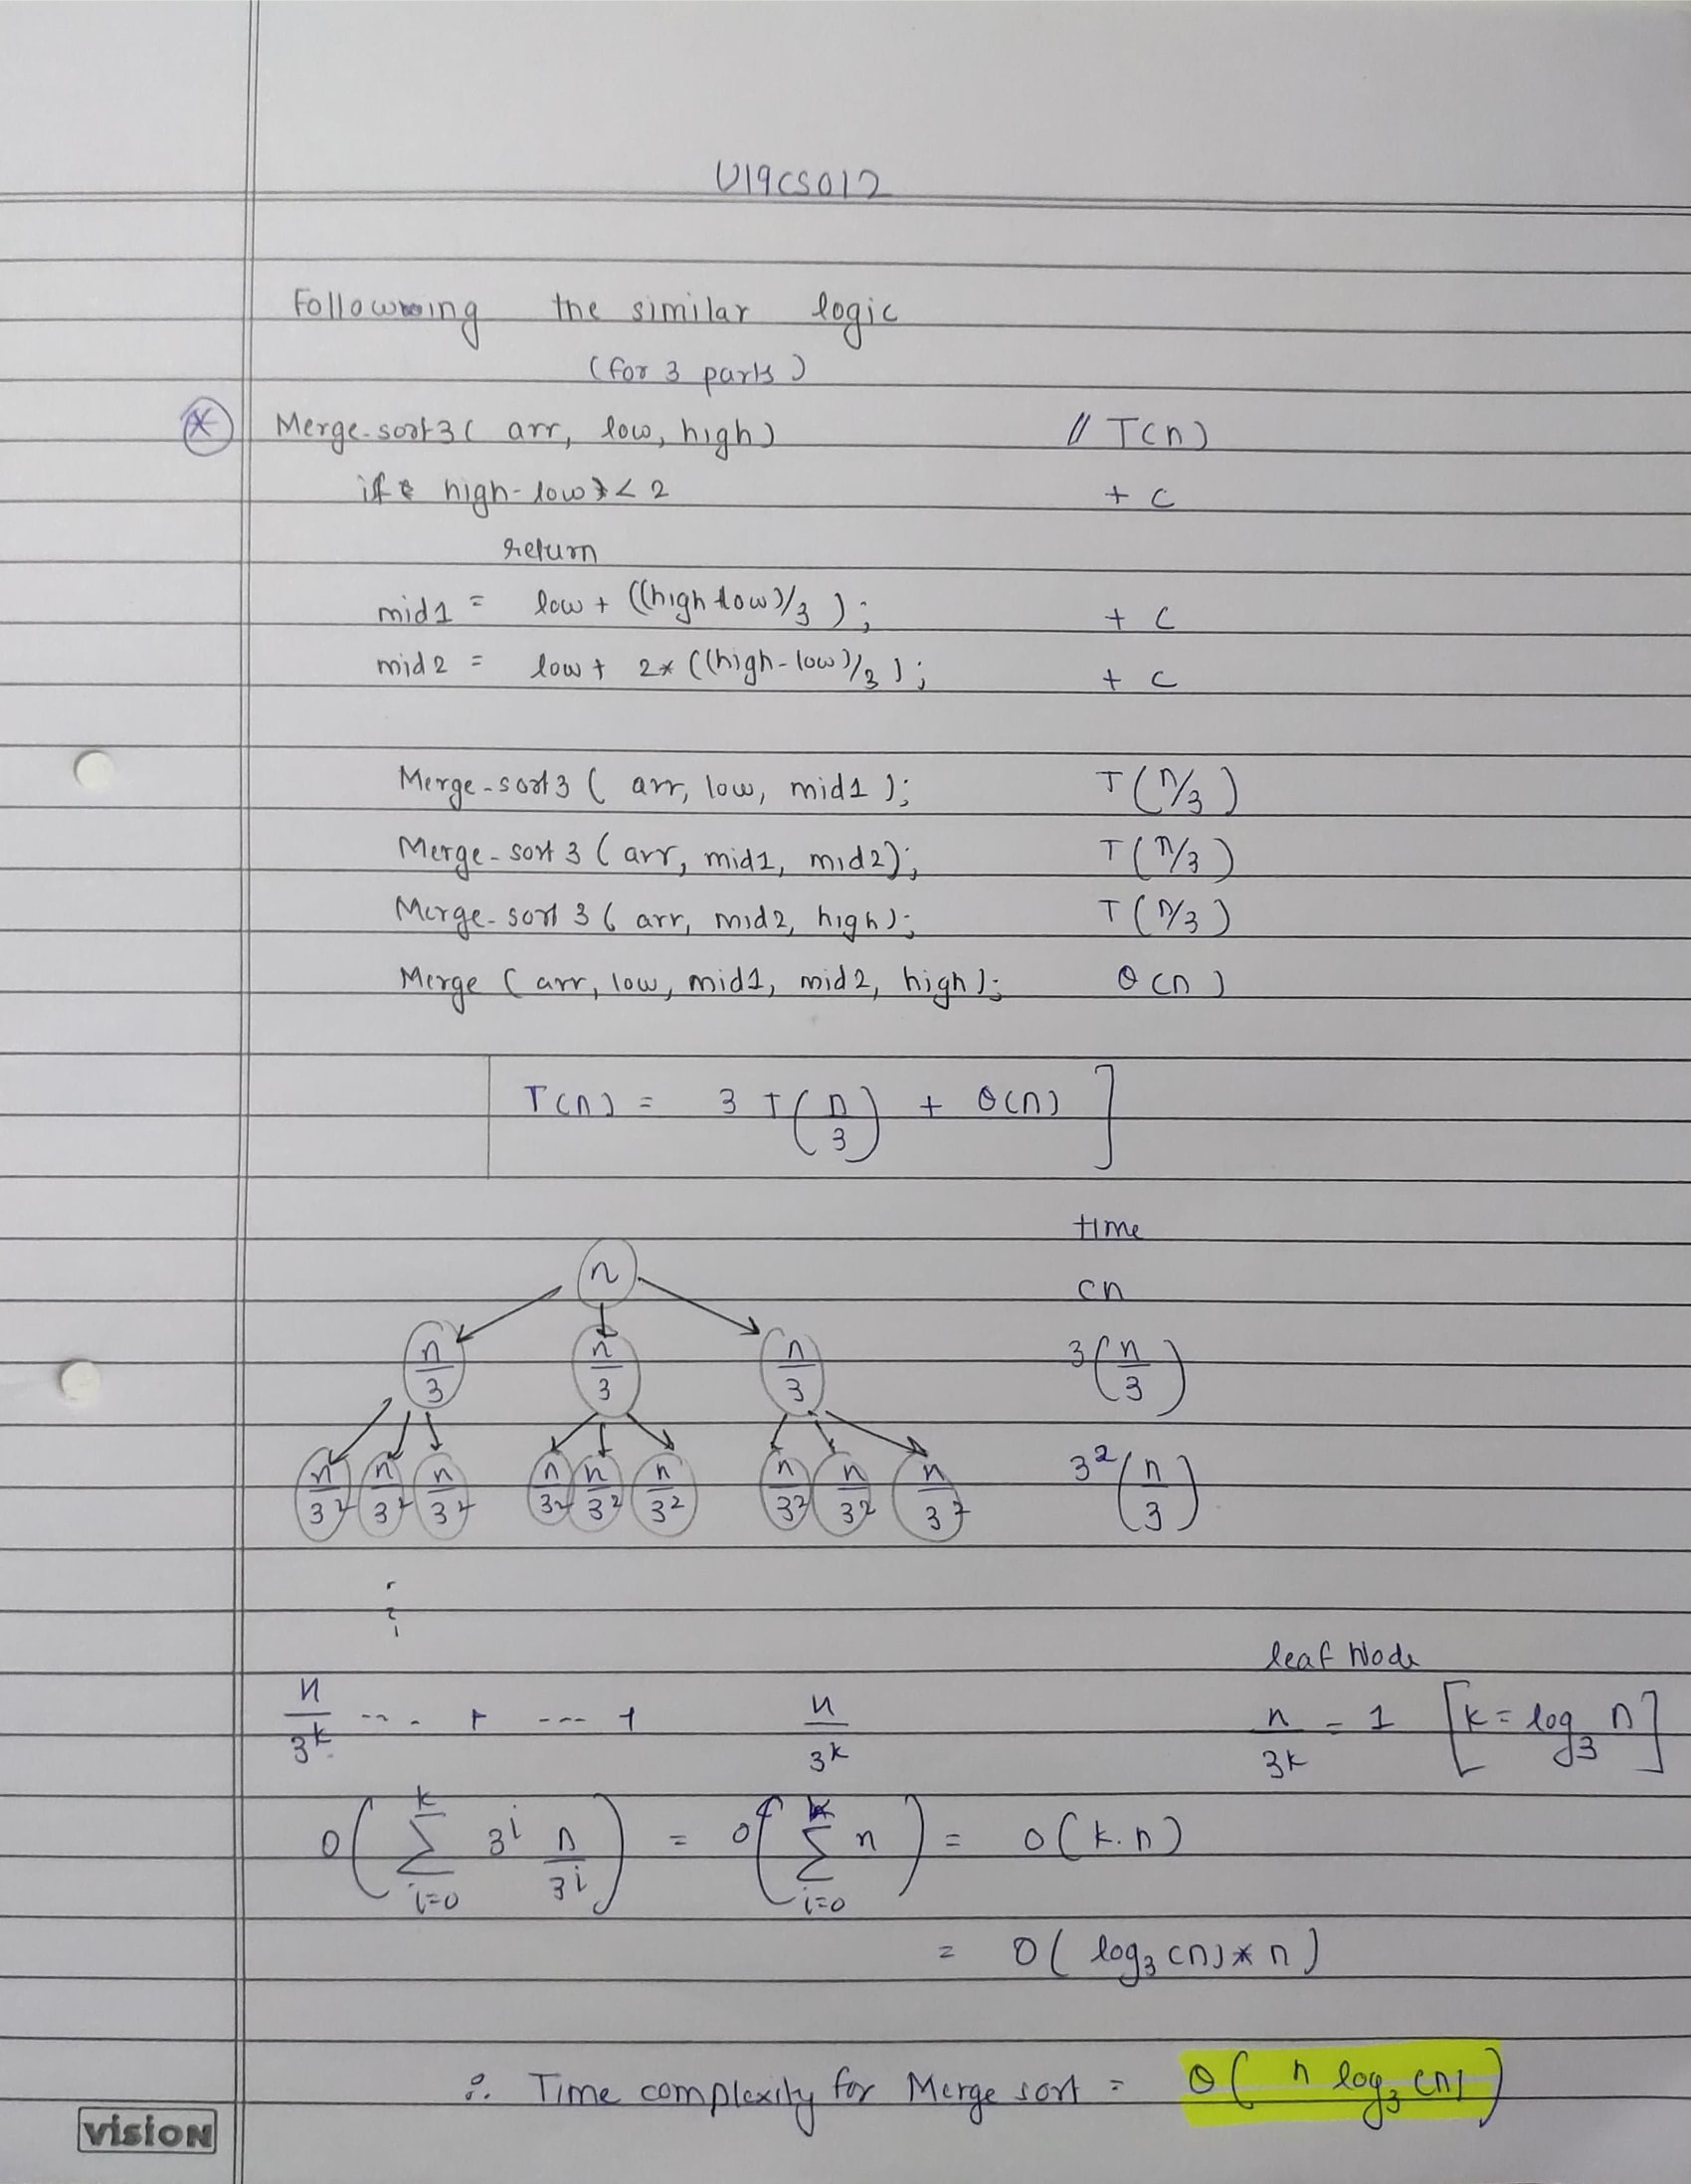 U19CS012
Following the similar logic
(for 3 parts)
* Merge-sort3( arr, low, high) // T(n)
if high-low < 2 + c
return
mid1 = low + ((high-low)/3 ); + c
mid2 = low + 2* ((high-low)/3 ); + c
Merge-sort3 ( arr, low, mid1 ); T(n/3)
Merge-sort3 ( arr, mid1, mid2); T(n/3)
Merge-sort3 ( arr, mid2, high); T(n/3)
Merge ( arr, low, mid1, mid2, high); θ(n)
T(n) = 3 T(n/3) + θ(n)
time
n cn
n/3 n/3 n/3 3(n/3)
n/3² n/3² n/3² n/3² n/3² n/3² n/3² n/3² n/3² 3²(n/3)
leaf Node
n/3^k --- + --- + n/3^k n/3^k = 1 [k = log₃ n]
O( Σ_{i=0}^{k} 3^i n/3^i ) = O( Σ_{i=0}^{k} n ) = O(k.n)
= O( log₃(n)*n )
∴ Time complexity for Merge sort = θ( n log₃(n) )
vision